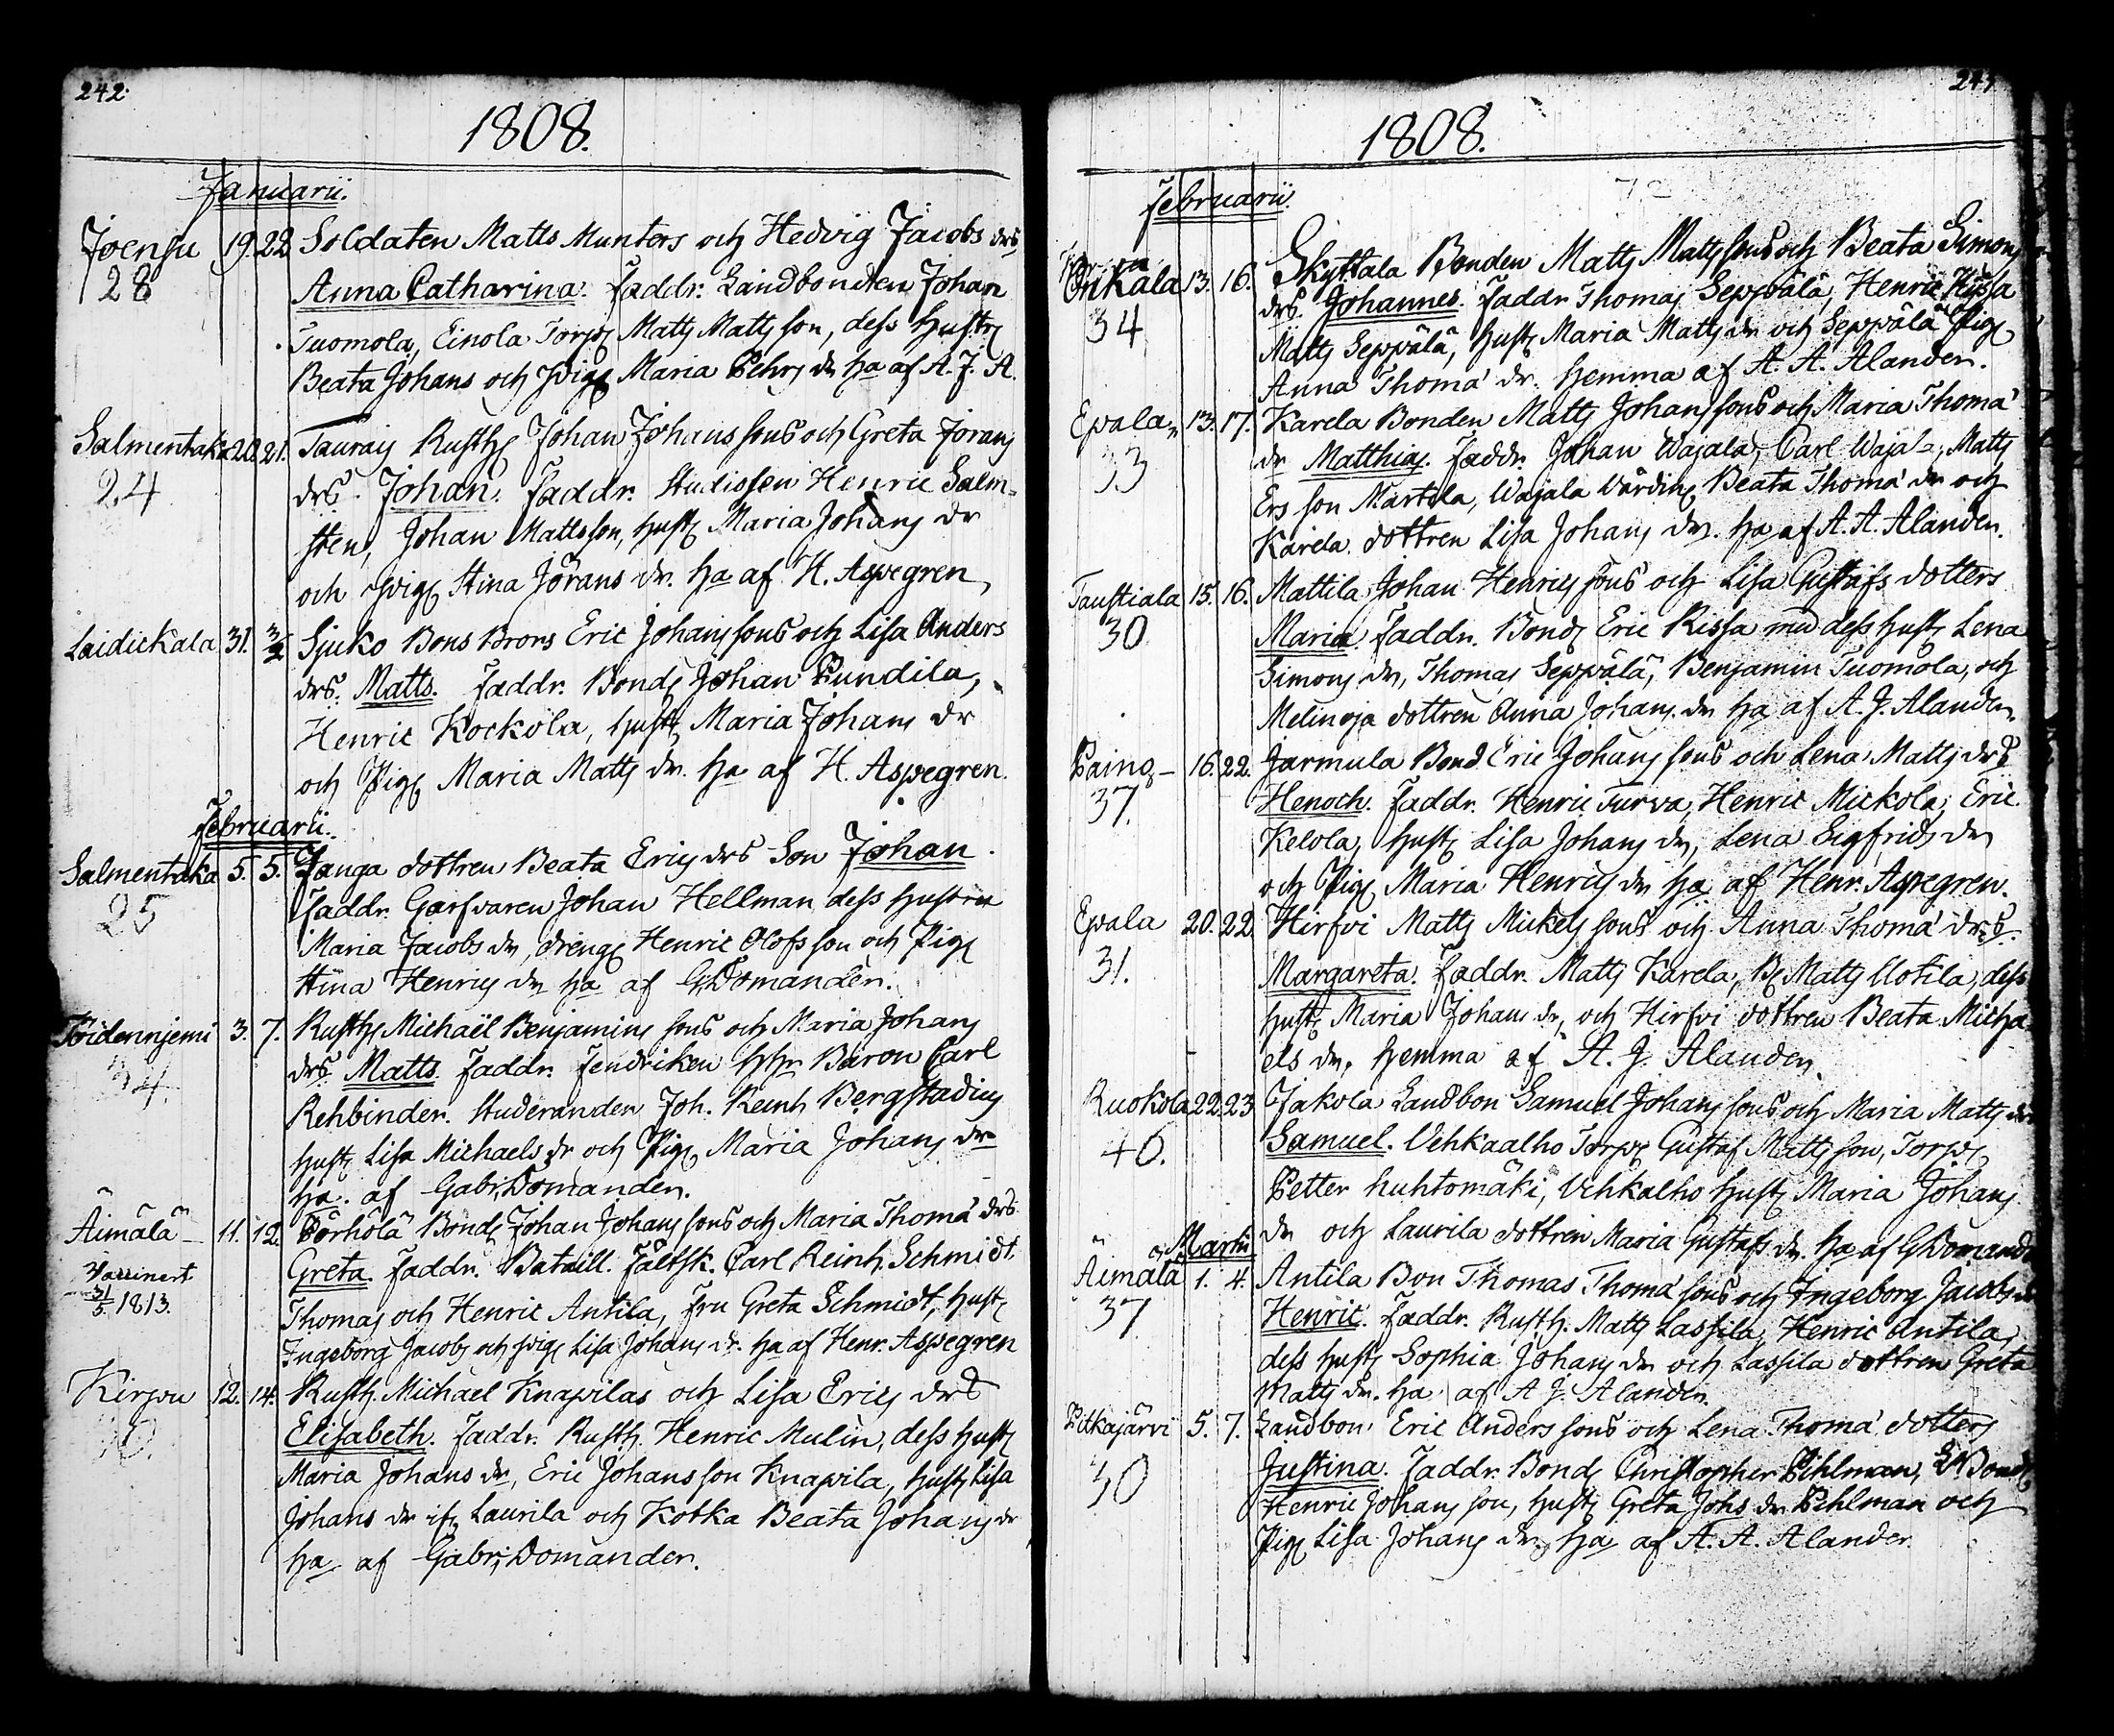 242.
1808.
Januarii.
Joensu 19. 22. Soldaten Matts Munters och Hedvig Jacobs drs
28 Anna Catharina. Faddr. Landbonden Johan
Tuomola, Einola Torp. Matts Mattsson, dess hustr.
Beata Johans och Pig. Maria Pehrs dr ha af A. J. A.
Salmentaka 20. 21. Taurais Rusth. Johan Johans sons och Greta Jörans
24 drs. Johan. Faddr. Studiosen Henric Salm-
sten, Johan Mattsson, hust. Maria Johans dr
och Pig. Stina Jörans dr. ha af H. Aspegren,
Laidickala 31. 3/2 Sjuko Bons Brors Eric Johans sons och Lisa Anders
drs. Matts. Faddr. Bond. Johan Pundila,
Henric Kockola, hust. Maria Johans dr
och Pig. Maria Matts dr. ha af H. Aspegren.
Februarii.
Salmentaka 5. 5. Janga dottren Beata Erics drs Son Johan.
25 Faddr. Garfvaren Johan Hellman dess hustru
Maria Jacobs dr, dreng. Henric Olofsson och Pig.
Stina Henrics dr ha af G. Domander.
Toidennjemi 3. 7. Rusth. Michaël Benjamins sons och Maria Johans
34. drs. Matts. Faddr. Fendriken HHr Baron Carl
Rehbinder. Studeranden Joh. Reinh Bergstadius
hust. Lisa Michaels dr och Pig. Maria Johans dr
ha. af Gabr. Domander.
Äimälä 11. 12. Pörhölä Bond. Johan Johans sons och Maria Thomæ drs.
Greta. Faddr. Bataill. Fältsk. Carl Reinh. Schmidt.
Vaccinert
31/5 1813. Thomas och Henric Antila, Fru Greta Schmidt, hust.
Ingeborg Jacobs och Pig. Lisa Johans dr. ha af Henr. Aspegren
Kirpu 12. 14. Rusth. Michael Knapilas och Lisa Erics drs
Elisabeth. Faddr. Rusth. Henric Mulin, dess hust.
Maria Johans dr, Eric Johansson Knapila, hust. Lisa
Johans dr ifr. Laurila och Kotka Beata Johans dr
ha af Gabr. Domander.
1808.
Februarii.
Onkala 13. 16. Skyttala Bonden Matts Mattssons och Beata Simons
34 drs. Johannes. Faddr. Thomas Seppälä, Henric Kyssa
Matts Seppälä, hust. Maria Matts dr och Seppälä Pig.
Anna Thomæ dr. hemma af A. A. Alander.
Epala 13. 17. Karela Bonden Matts Johans sons och Maria Thomæ
33 dr Matthias. Faddr. Johan Wajala, Carl Wajala, Matts
Ers son Martila, Wajala Wärdin. Beata Thomæ dr och
Karela dottren Lisa Johans dr. ha af A. A. Alander.
Taustiala 15. 16. Mattila Johan Henrics sons och Lisa Gustafs dotters
30 Maria. Faddr. Bond. Eric Rissa med dess hust. Lena
Simons dr, Thomas Seppälä, Benjamin Tuomola, och
Melinoja dottren Anna Johans dr ha af A. J. Alander.
Paino 16. 22. Jarmula Bond. Eric Johans sons och Lena Matts drs
37. Henoch. Faddr. Henric Turva, Henric Mickola, Eric
Kelola, hust. Lisa Johans dr, Lena Sigfrids dr
och Pig. Maria Henrics dr ha af Henr. Aspegren.
Epala 20. 22. Hirfvi Matts Mickels sons och Anna Thomæ drs.
31. Margareta. Faddr. Matts Karela, B. Matts Uotila, dess
hust. Maria Johans dr, och Hirfvi dottren Beata Micha-
els dr. hemma af A. J. Alander.
Ruokola 22. 23 Jakola Landbon Samuel Johans sons och Maria Matts drs
40. Samuel. Vehkaalho Torp. Gustaf Mattsson, Torp.
Petter huhtomäki, Vehkalho hust. Maria Johans
dr och Laurila dottren Maria Gustafs dr. ha af G Domander
Martii
Äimälä 1. 4. Antila Bon Thomas Thomæ sons och Ingeborg Jacobs drs
37 Henric. Faddr. Rusth. Matts Lassila, Henric Antila,
dess hust. Sophia Johans dr och Lassila dottren Greta
Matts dr. ha af A J. Alander.
Pitkajärvi 5. 7. Landbon Eric Anders sons och Lena Thomæ dotters
30 Justina. Faddr. Bond. Christopher Pihlman, L. Bond.
Henric Johans son, hust. Greta Johs dr Pihlman och
Pig. Lisa Johans dr, ha af A. A. Alander.